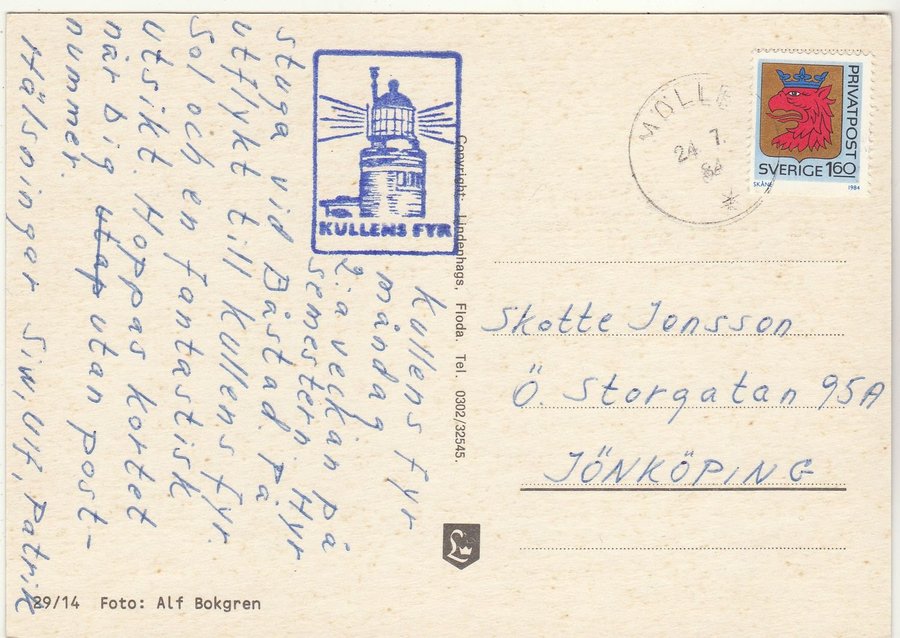 Kullens fyr
måndag
2:a veckan på
semestern. Hyr
stuga vid Båstad. På
utflykt till Kullens fyr.
Sol och en fantastisk
utsikt. Hoppas kortet
når Dig utan post-
nummer.
Hälsningar Siw, Ulf, Patrik
KULLENS FYR
Copyright: Lindenhags, Floda. Tel. 0302/32545.
MÖLLE
24 7.
84
*
PRIVATPOST
SVERIGE 160
SKÅNE 1984
Skotte Jonsson
Ö. Storgatan 95A
JÖNKÖPING
L
29/14 Foto: Alf Bokgren